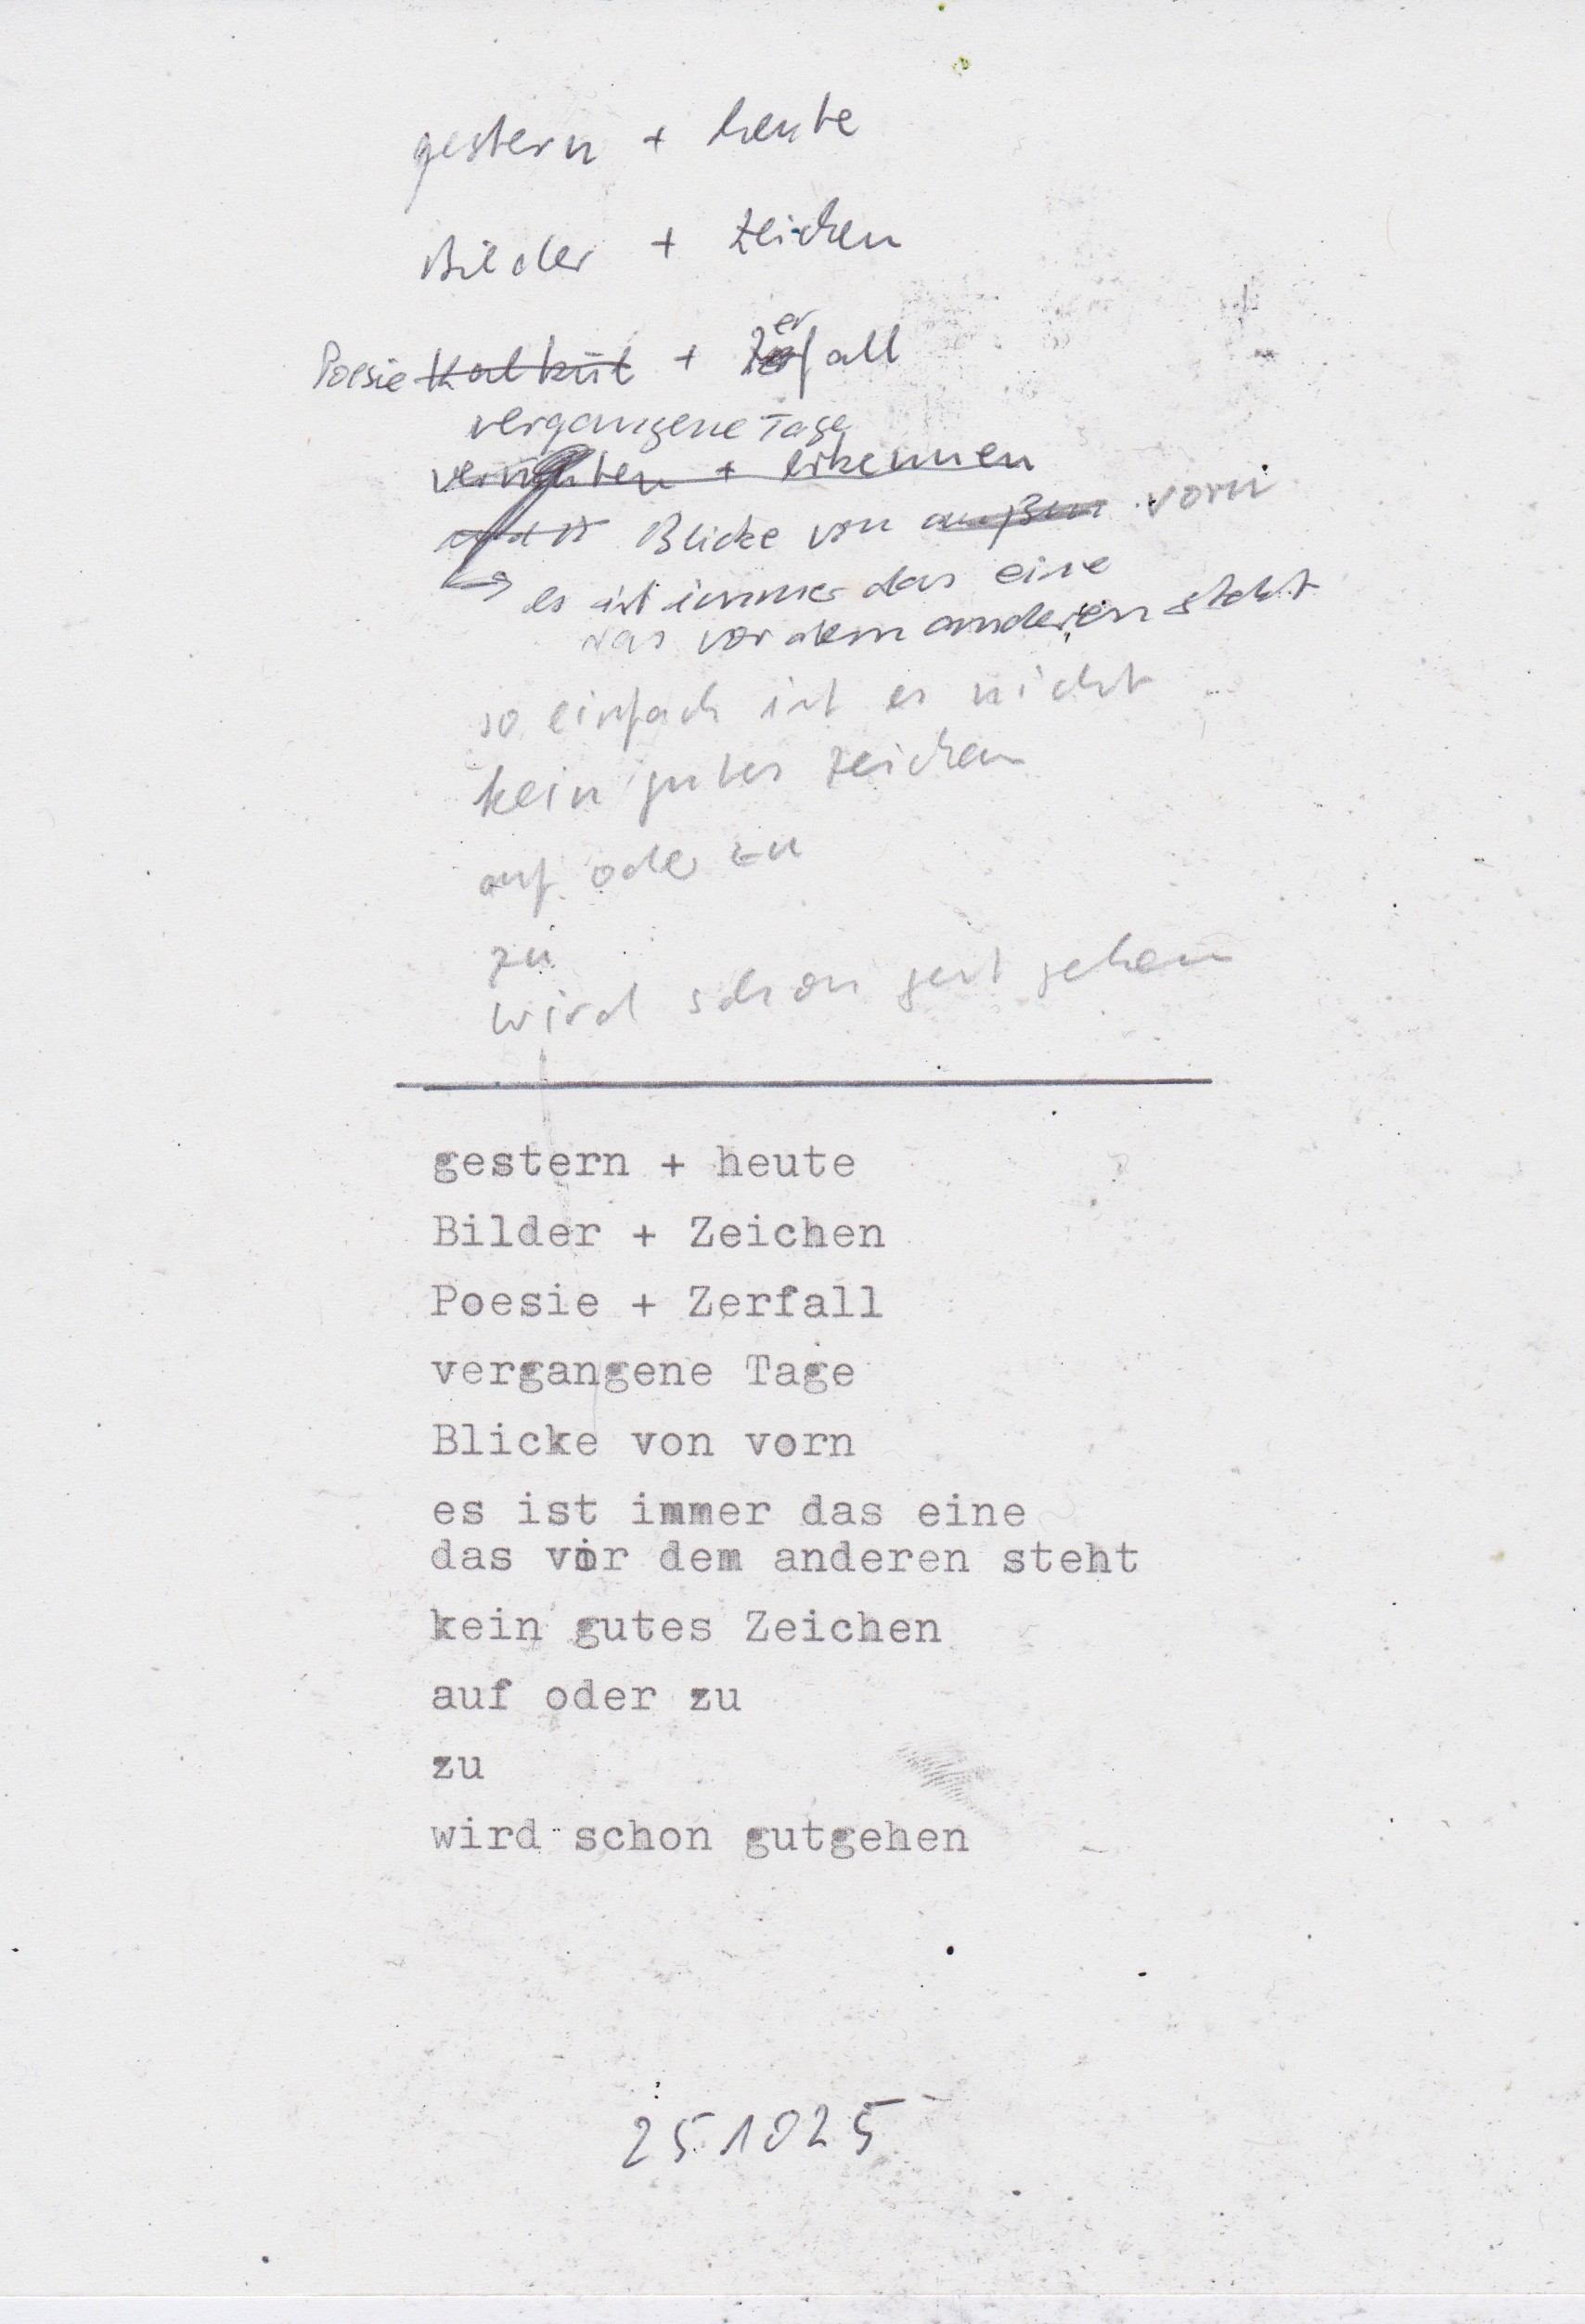 gestern + heute
Bilder + Zeichen
er
Poesie Kalkül + Zerfall
vergangene Tage
vernichten + erkennen
Blicke von außen vorn
es ist immer das eine
was vor dem anderen steht
so einfach ist es nicht
kein gutes Zeichen
auf oder zu
zu
wird schon gut gehen
gestern + heute
Bilder + Zeichen
Poesie + Zerfall
vergangene Tage
Blicke von vorn
es ist immer das eine
das vor dem anderen steht
kein gutes Zeichen
auf oder zu
zu
wird schon gutgehen
251025